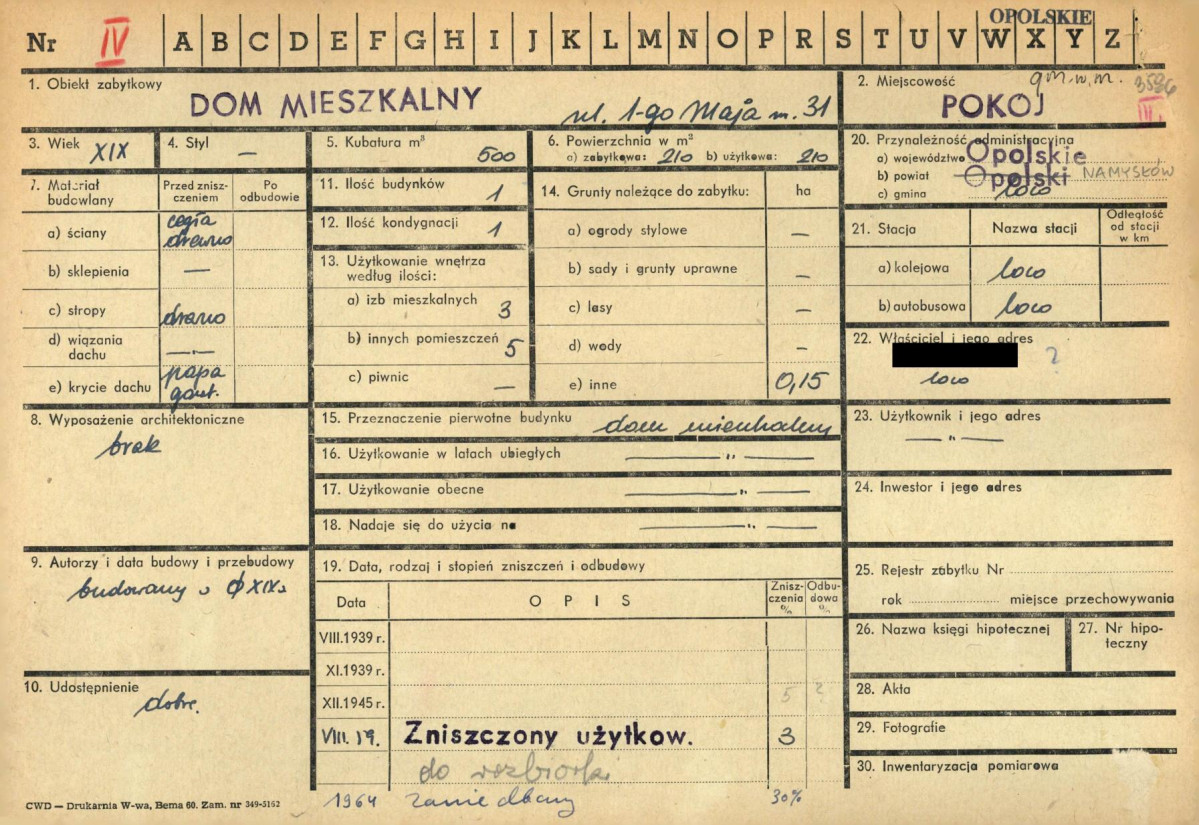 OPOLSKIE
Nr IV A B C D E F G H I J K L M N O P R S T U V W X Y Z
1. Obiekt zabytkowy
DOM MIESZKALNY ul. 1-go Maja nr. 31
2. Miejscowość gm. w. m. 3596
POKÓJ III
3. Wiek XIX
4. Styl —
5. Kubatura m³ 500
6. Powierzchnia w m²
a) zabytkowa: 210 b) użytkowa: 210
20. Przynależność administracyjna
a) województwo Opolskie
b) powiat Opolski NAMYSŁÓW
c) gmina loco
7. Materiał budowlany
Przed zniszczeniem
Po odbudowie
a) ściany cegła drewno
b) sklepienia —
c) stropy drewno
d) wiązania dachu —„—
e) krycie dachu papa gont.
11. Ilość budynków 1
12. Ilość kondygnacji 1
13. Użytkowanie wnętrza według ilości:
a) izb mieszkalnych 3
b) innych pomieszczeń 5
c) piwnic —
14. Grunty należące do zabytku: ha
a) ogrody stylowe —
b) sady i grunty uprawne —
c) lasy —
d) wody —
e) inne 0,15
21. Stacja Nazwa stacji Odległość od stacji w km
a) kolejowa loco
b) autobusowa loco
22. Właściciel i jego adres
?
loco
8. Wyposażenie architektoniczne
brak
15. Przeznaczenie pierwotne budynku dom mieszkalny
16. Użytkowanie w latach ubiegłych —„—
17. Użytkowanie obecne —„—
18. Nadaje się do użycia na —„—
23. Użytkownik i jego adres
—„—
24. Inwestor i jego adres
9. Autorzy i data budowy i przebudowy
budowany w XIX w
10. Udostępnienie
dobre.
19. Data, rodzaj i stopień zniszczeń i odbudowy
Data OPIS Zniszczenia % Odbudowa %
VIII.1939 r.
XI.1939 r.
XII.1945 r. 5 ?
VIII. 59. Zniszczony użytkow. 3
do rozbiórki
1964 zaniedbany 30%
25. Rejestr zabytku Nr
rok miejsce przechowywania
26. Nazwa księgi hipotecznej
27. Nr hipoteczny
28. Akta
29. Fotografie
30. Inwentaryzacja pomiarowa
CWD — Drukarnia W-wa, Bema 60. Zam. nr 349-5162